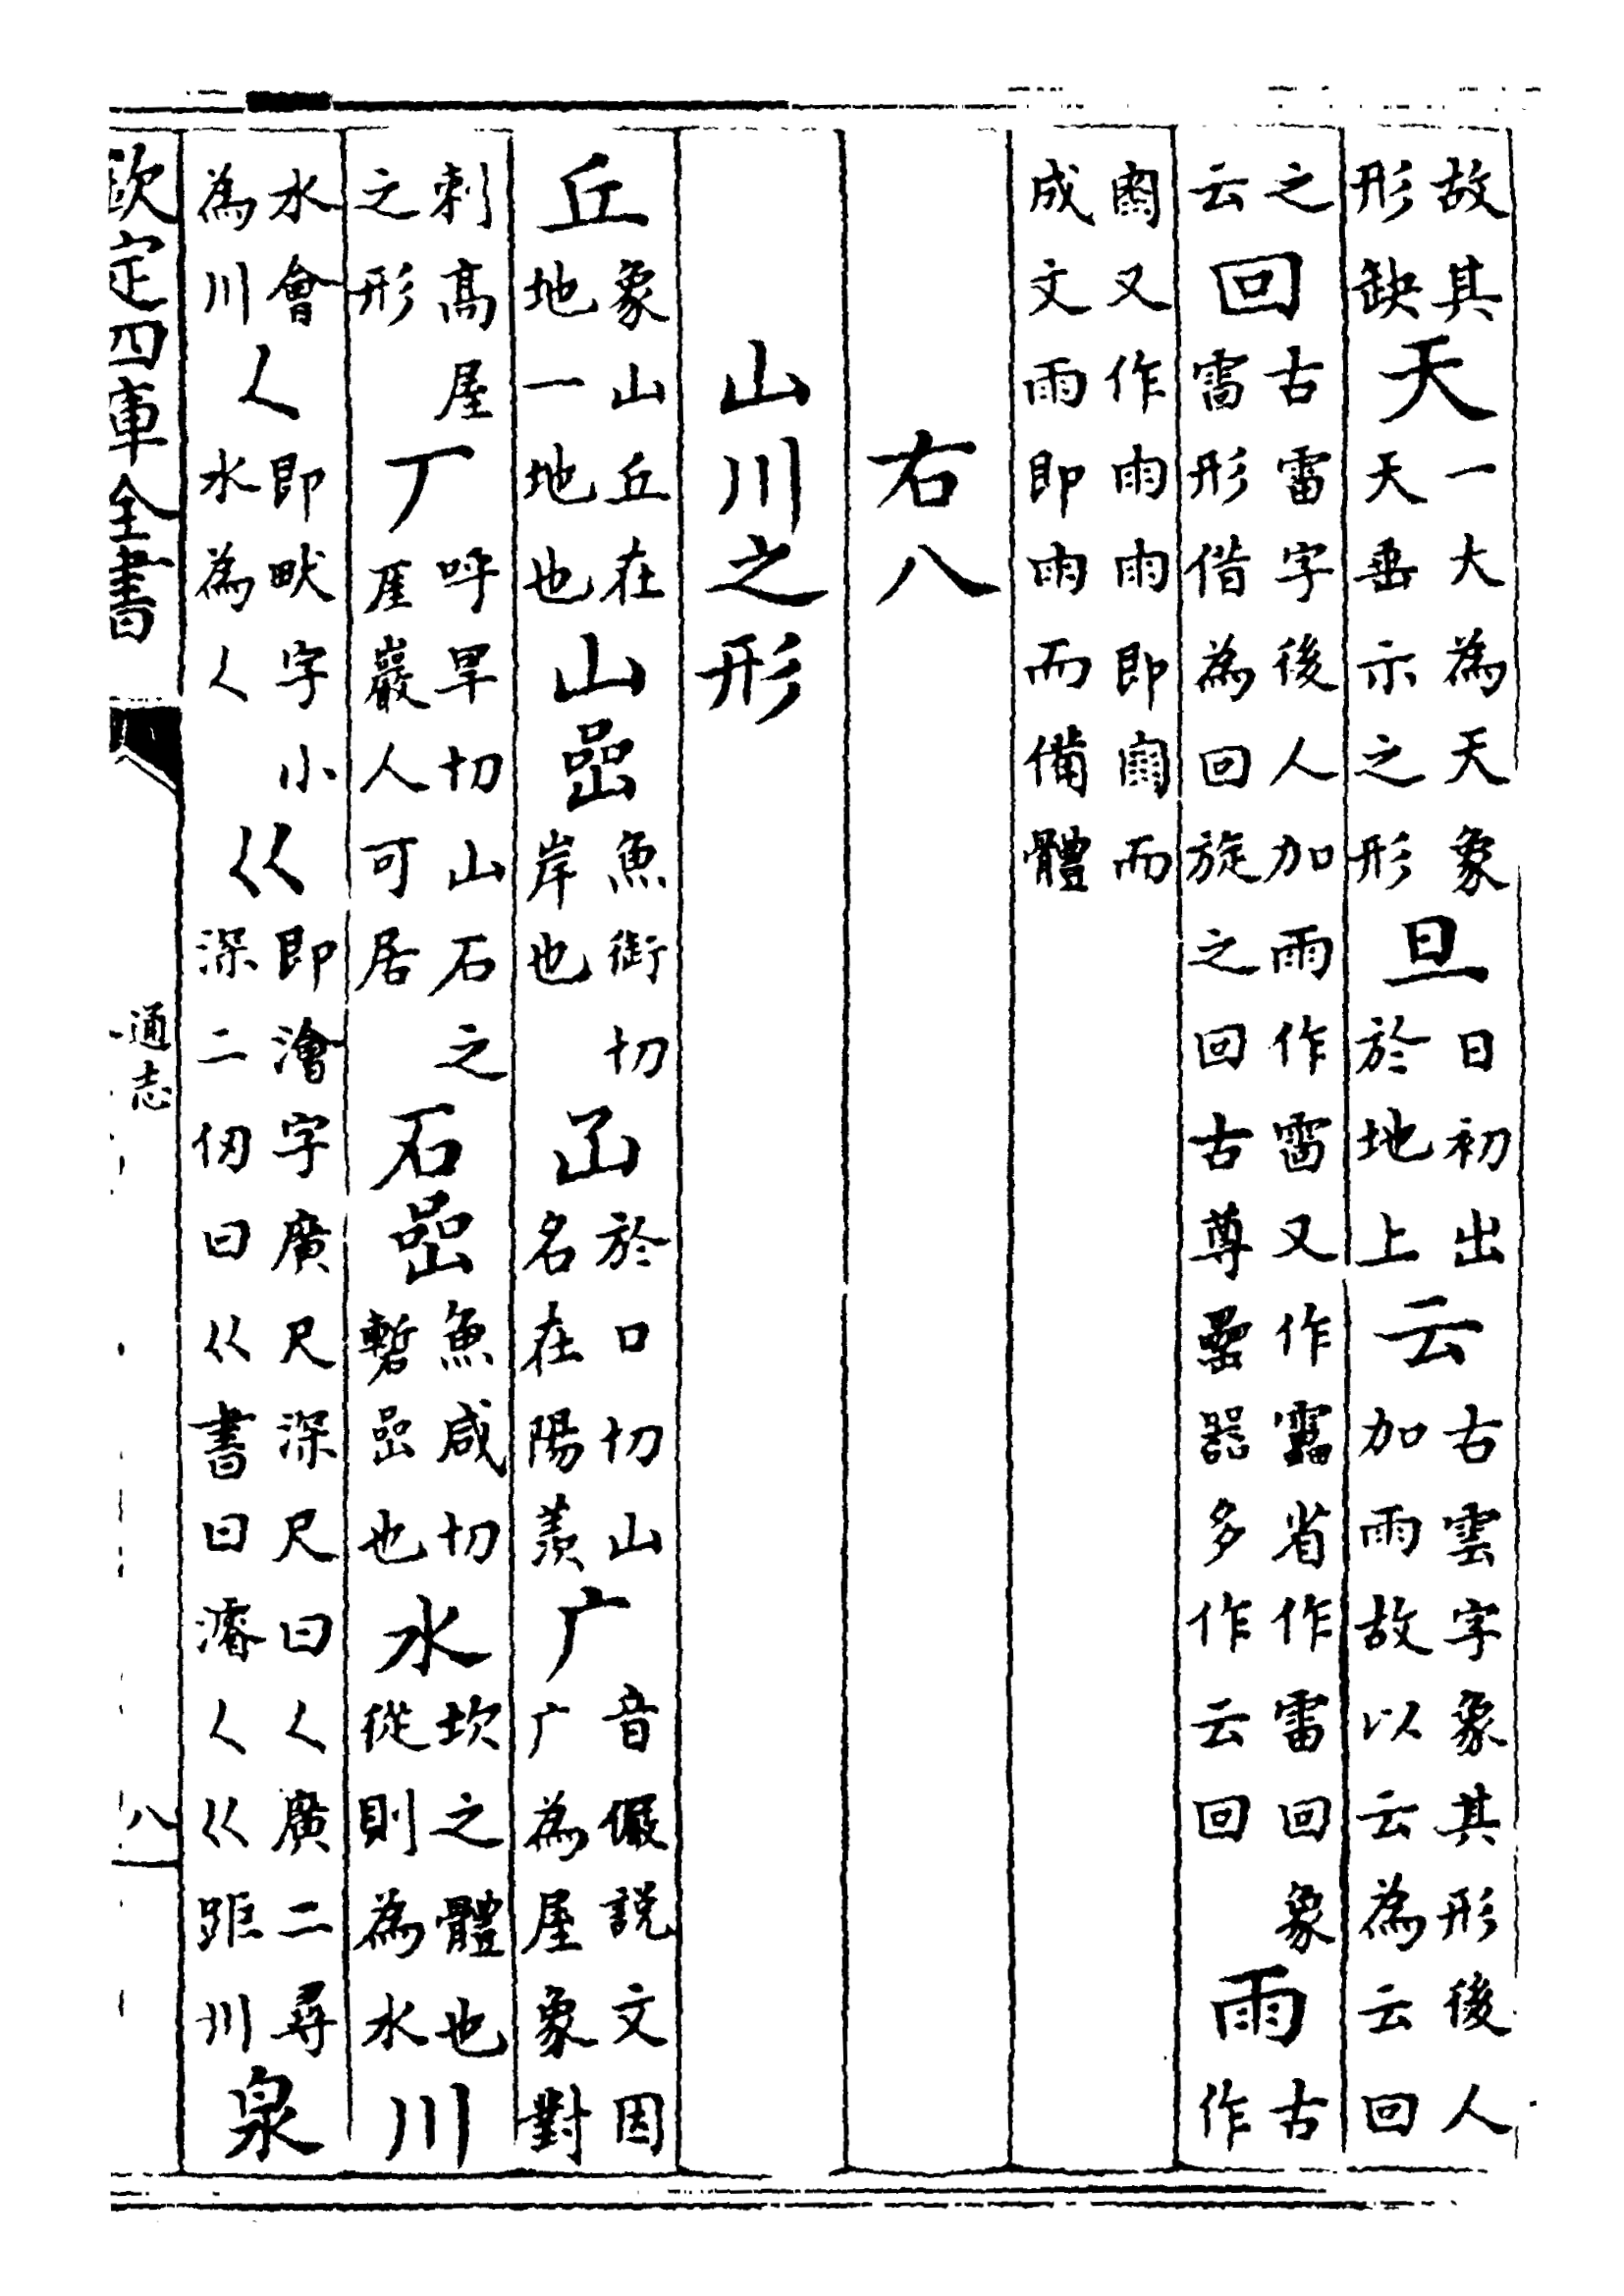 故其形缺天一大為天象天垂示之形旦日初出於地上云右雲字象其形後人加雨故以云為云回
之云回古雷字後人加雨作雷又作靁省作雷回象雷形借為回旋之回古尊罍器多作云回雨古作
又作雨雨即而成文雨即雨而備體
右八
山川之形
丘象山丘在地一地也山嵒魚銜切岸也㞤於口切山名在陽羨广音儼說文因广為屋象對
刺高屋之形厂呼旱切山石之厓巖人可居石嵒魚咸切暫嵒也水坎之體也從則為水川
水會為川𡿨即畎字小水為𡿨巜即澮字廣尺深尺曰𡿨廣二尋深二仞曰巜書曰濬𡿨巜距川泉
欽定四庫全書
通志
八